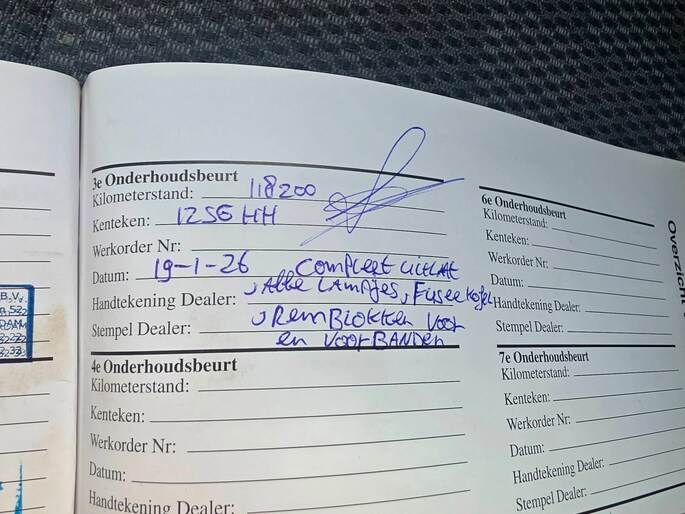 3e Onderhoudsbeurt
Kilometerstand: 118200
Kenteken: 12SGHH
Werkorder Nr:
Datum: 19-1-26 compleet uitlaat
Handtekening Dealer: , Alle Lampjes, Fusee kogel
Stempel Dealer: , RemBlokken voor
en voorBanden
4e Onderhoudsbeurt
Kilometerstand:
Kenteken:
Werkorder Nr:
Datum:
Handtekening Dealer:
6e Onderhoudsbeurt
Kilometerstand:
Kenteken:
Werkorder Nr:
Datum:
Handtekening Dealer:
Stempel Dealer:
7e Onderhoudsbeurt
Kilometerstand:
Kenteken:
Werkorder Nr:
Datum:
Handtekening Dealer:
Stempel Dealer:
Overzicht
B.V.